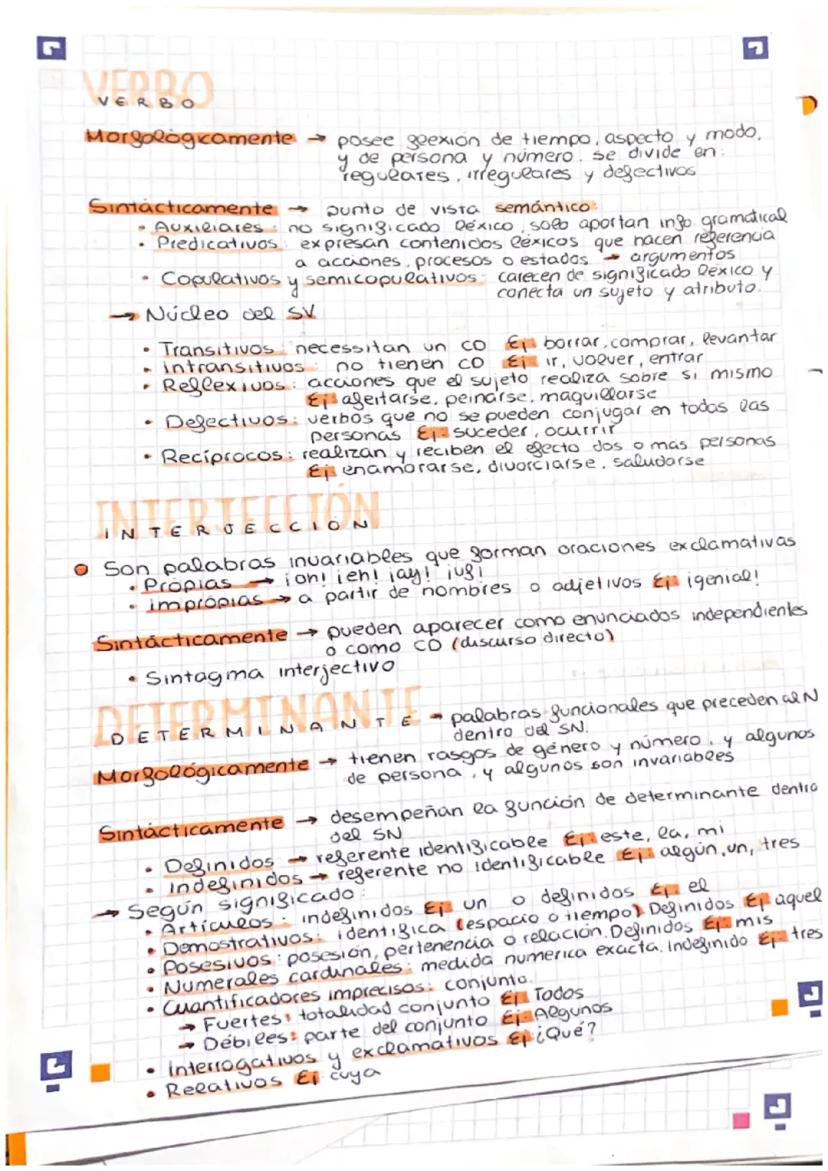 VERBO
VERBO
Morfológicamente → posee flexión de tiempo, aspecto y modo,
y de persona y número. Se divide en:
regulares, irregulares y defectivos
Sintácticamente → punto de vista semántico:
• Auxiliares: no significado léxico, solo aportan info. gramatical
• Predicativos: expresan contenidos léxicos que hacen referencia
a acciones, procesos o estados → argumentos
• Copulativos y semicopulativos: carecen de significado léxico y
conecta un sujeto y atributo.
→ Núcleo del SV
• Transitivos: necessitan un CD Ej: borrar, comprar, levantar
• Intransitivos: no tienen CD Ej: ir, volver, entrar
• Reflexivos: acciones que el sujeto realiza sobre si mismo
Ej: afeitarse, peinarse, maquillarse
• Defectivos: verbos que no se pueden conjugar en todas las
personas Ej: suceder, ocurrir
• Recíprocos: realizan y reciben el efecto dos o mas personas
Ej: enamorarse, divorciarse, saludarse
INTERJECCIÓN
INTERJECCIÓN
Son palabras invariables que forman oraciones exclamativas
• Propias → ¡oh! ¡eh! ¡ay! ¡uf!
• impropias → a partir de nombres o adjetivos Ej: ¡genial!
Sintácticamente → pueden aparecer como enunciados independientes
o como CD (discurso directo)
• Sintagma interjectivo
DETERMINANTE
DETERMINANTE → palabras funcionales que preceden al N
dentro del SN.
Morfológicamente → tienen rasgos de género y número, y algunos
de persona, y algunos son invariables
Sintácticamente → desempeñan la función de determinante dentro
del SN
• Definidos → referente identificable Ej: este, la, mi
• Indefinidos → referente no identificable Ej: algún, un, tres
→ Según significado:
• Artículos: indefinidos Ej: un o definidos Ej: el
• Demostrativos: identifica (espacio o tiempo) Definidos Ej: aquel
• Posesivos: posesión, pertenencia o relación. Definidos Ej: mis
• Numerales cardinales: medida numerica exacta. Indefinido Ej: tres
• Cuantificadores imprecisos: conjunto.
→ Fuertes: totalidad conjunto Ej: Todos
→ Débiles: parte del conjunto Ej: Algunos
• Interrogativos y exclamativos Ej: ¿Qué?
• Relativos Ej: cuya